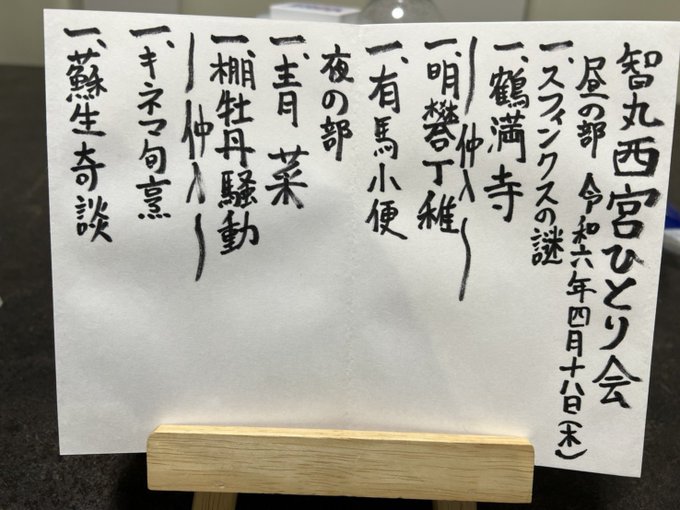 智丸西宮ひとり会
昼の部 令和六年四月十八日(木)
一、スフィンクスの謎
一、鶴満寺
〜仲入〜
一、明礬丁稚
一、有馬小便
夜の部
一、青菜
一、棚牡丹騒動
〜仲入〜
一、キネマ旬烹
一、蘇生奇談